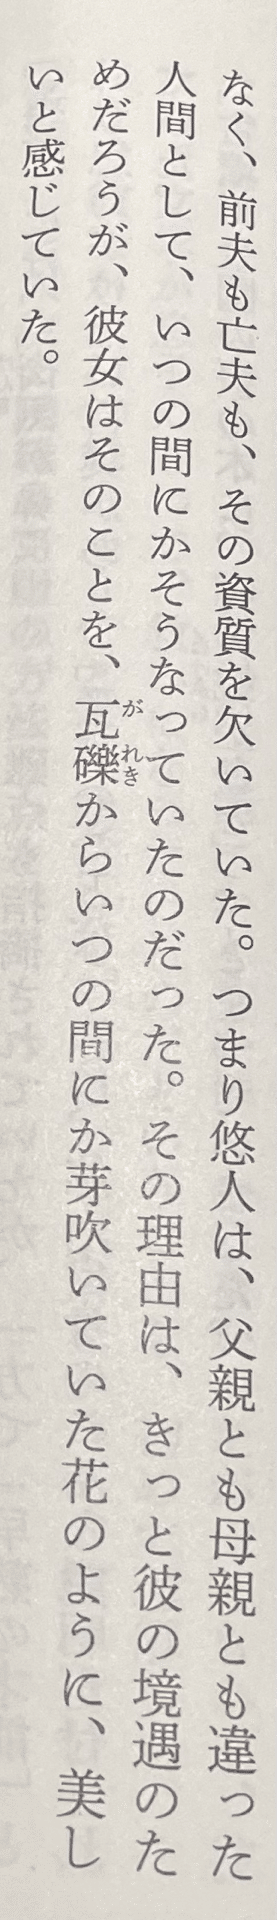 なく、前夫も亡夫も、その資質を欠いていた。つまり悠人は、父親とも母親とも違った
人間として、いつの間にかそうなっていたのだった。その理由は、きっと彼の境遇のた
めだろうが、彼女はそのことを、瓦礫からいつの間にか芽吹いていた花のように、美し
いと感じていた。